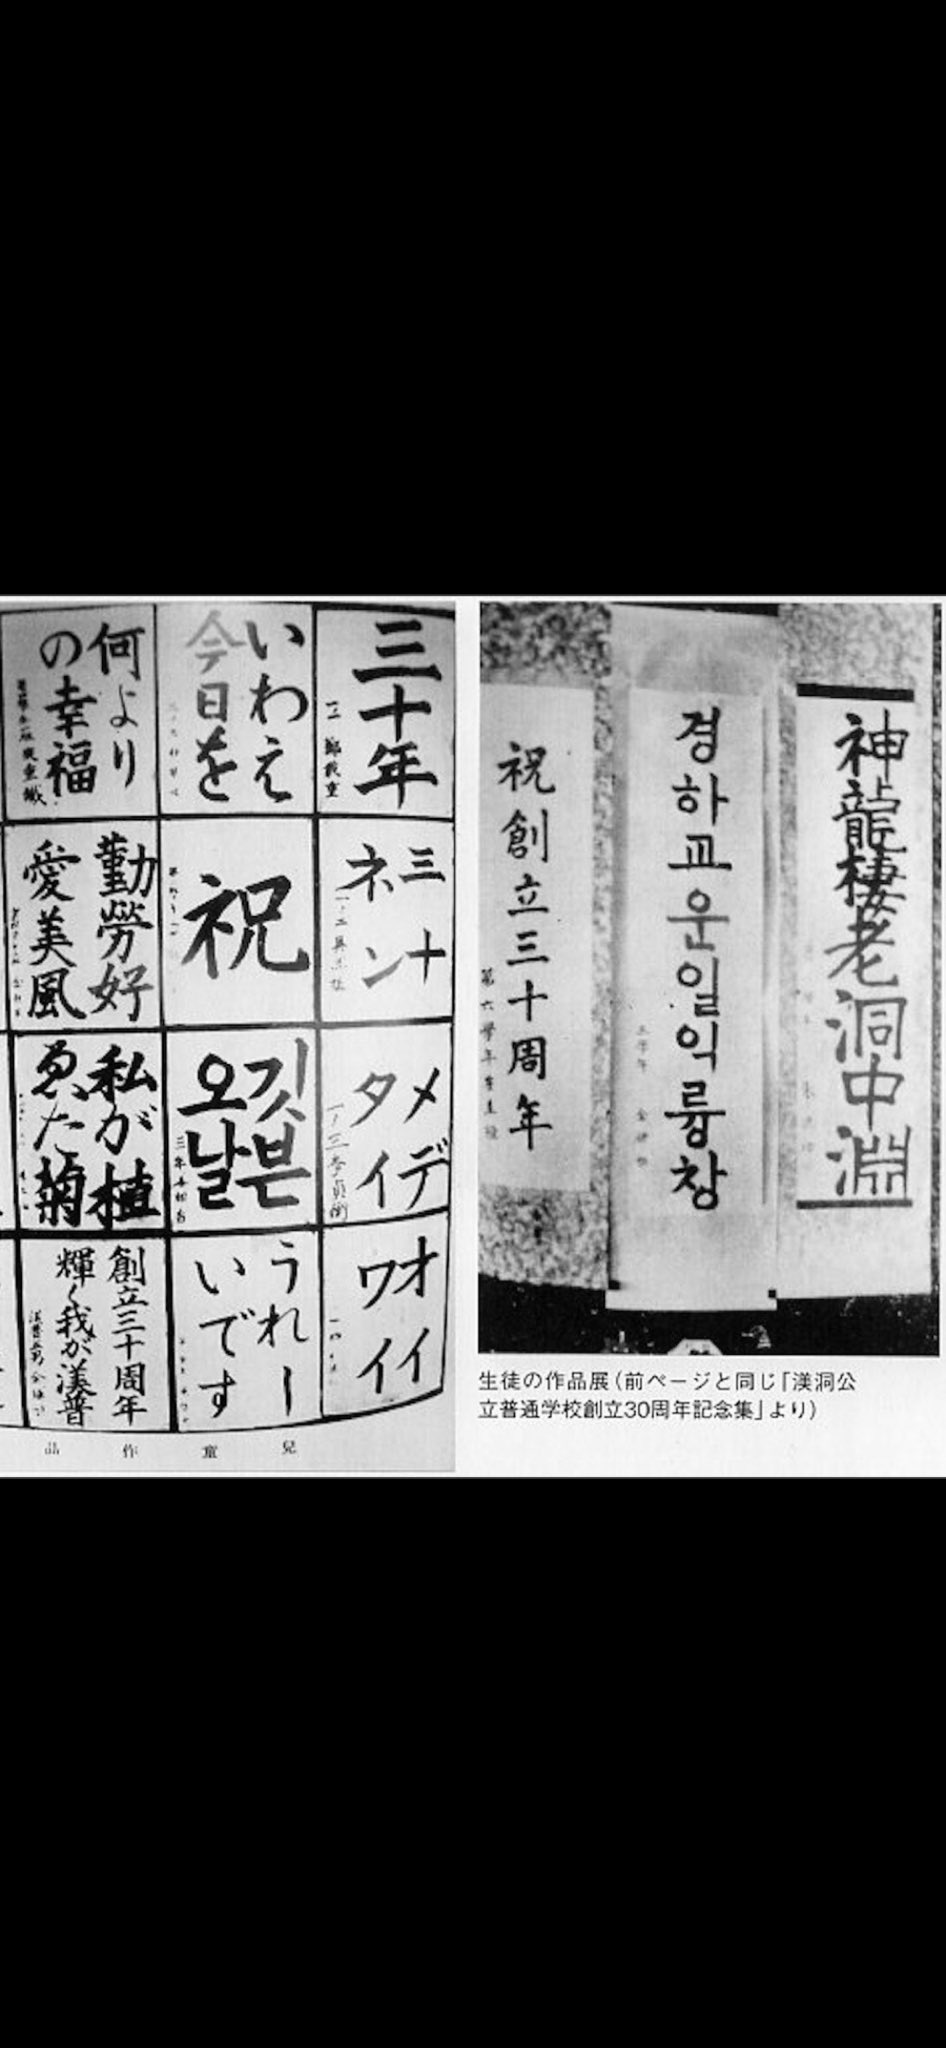 三十年
三十
ネン
メデ
タイ
オイ
ワイ
いわえ
今日を
祝
깃븐
오날
うれー
いです
何より
の幸福
勤勞好
愛美風
私が植
ゑた菊
創立三十周年
輝く我が渼普
兒童作品
神龍棲老洞中淵
경하교운일익륭창
祝創立三十周年
生徒の作品展(前ページと同じ「渼洞公
立普通学校創立30周年記念集」より)